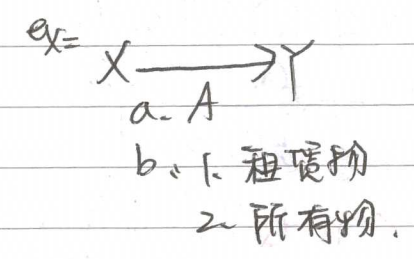 ex=
X → Y
a. A
b、1. 租賃物
2. 所有物.